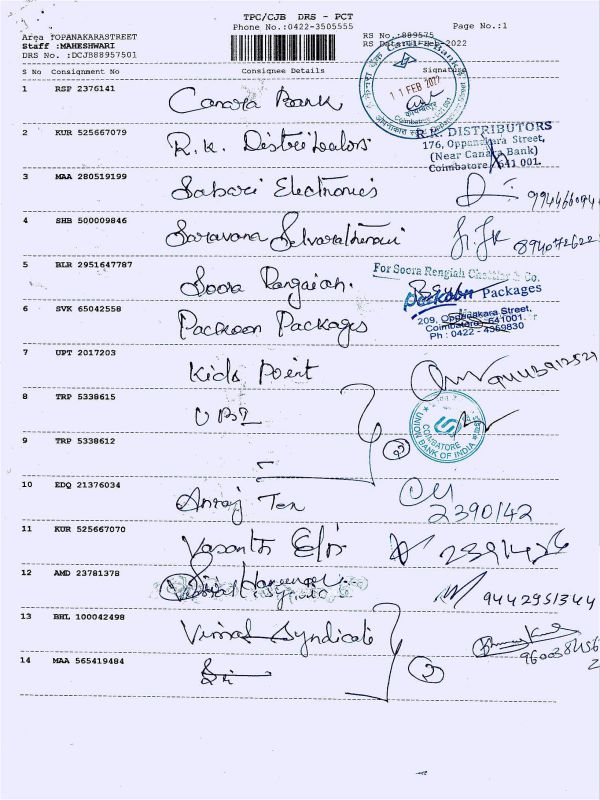 TPC/CJB DRS - PCT
Phone No.:0422-3505555
Page No.:1
Area TOPANAKARASTREET
Staff :MAHESHWARI
DRS No. :DCJB88957501
RS No.:889575
RS Date:11-Feb-2022
S No Consignment No Consignee Details Signature
1 RSP 2376141 Canara Bank
11 FEB 2022
Coimbatore
2 KUR 525667079 R.K. Distributors
R.K. DISTRIBUTORS
176, Oppanakara Street,
(Near Canara Bank)
Coimbatore 641 001.
3 MAA 280519199 Sabari Electronics
4 SHB 500009846 Saravana Selvarathinam
5 BLR 2951647787 Soora Rengaiah.
For Soora Rengiah Chettiar & Co.
6 SVK 65042558 Packoon Packages
packoon Packages
209, Oppanakara Street,
Coimbatore 641001.
Ph : 0422 - 4369830
7 UPT 2017203 Kids Point
8 TRP 5338615 UBI
UNION BANK OF INDIA
COIMBATORE
9 TRP 5338612
2
10 EDQ 21376034 Anraj Tex
2390142
11 KUR 525667070 Vasanth
12 AMD 23781378
9442951344
13 BHL 100042498 Vimal Syndicate
14 MAA 565419484
2